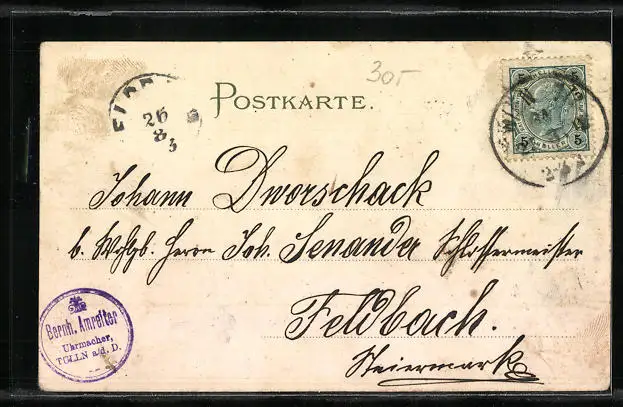 305
POSTKARTE.
FELDB
26
8
3
5 5
HELLER
WIEN
Johann Dworschack
b. Wohlgb. Herrn Joh. Senander Schlossermeister
Feldbach.
Steiermark
Bernh. Amreiter
Uhrmacher,
TULLN a/d. D.